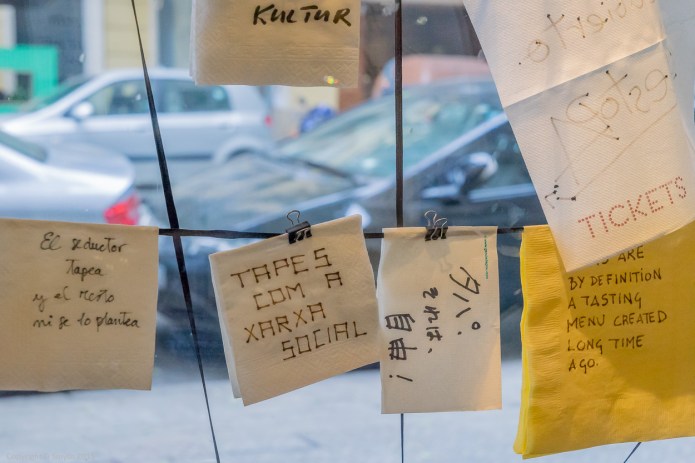 KULTUR
El seductor
Tapea
y el resto
ni se lo plantea
TAPES
COM A
XARXA
SOCIAL
タパ。
それは、
自由!
TICKETS
ARE
BY DEFINITION
A TASTING
MENU CREATED
LONG TIME
AGO.